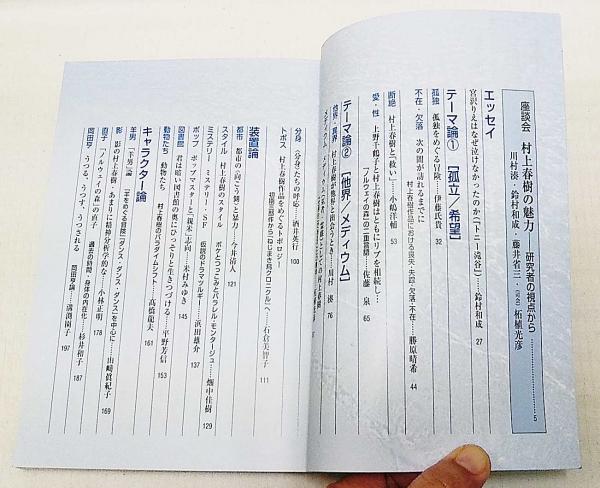 座談会 村上春樹の魅力 研究者の視点から
川村湊・鈴村和成・藤井省三・(司会)柘植光彦 5
エッセイ
宮沢りえはなぜ泣けなかったのか『トニー滝谷』……鈴村和成 27
テーマ論① [孤立/希望]
孤独 孤独をめぐる冒険……伊藤氏貴 32
不在・欠落 次の闇が訪れるまでに 村上春樹作品における喪失・失踪・欠落・不在……勝原晴希 44
断絶 村上春樹と〈救い〉……小嶋洋輔 53
愛・性 上野千鶴子と村上春樹はともにリブを相続…… 『ノルウェイの森』の二重言語……佐藤 泉 65
テーマ論② [他界/メディウム]
他界・異界 村上春樹が他界と出会うとき……川村 湊 76
メディウム
分身 〈分身〉たちの呼応……酒井英行 100
トポス 村上春樹作品をめぐるトポロジー 初期三部作から『ねじまき鳥クロニクル』へ……石倉美智子 111
装置論
都市 都市の〈向こう側〉と暴力……今井清人 121
スタイル 村上春樹のスタイル ボケとつっこみとパラレル・モンタージュ……畑中佳樹 129
ミステリー ミステリー・SF 仮説のドラマツルギー……浜田雄介 137
ポップ ポップマスターと「援米」志向……米村みゆき 145
図書館 君は暗い図書館の奥にひっそりと生きつづける……平野芳信 153
動物たち 動物たち 村上春樹のパラダイムシフト……髙橋龍夫 161
キャラクター論
羊男 「羊男」論 『羊をめぐる冒険』『ダンス・ダンス・ダンス』を中心に……山﨑眞紀子 169
影 影の村上春樹 あまりに精神分析学的な……小林正明 178
直子 『ノルウェイの森』の直子 過去の時間・身体の内在化……杉井和子 187
岡田亨 うつる、うつす、うつされる 岡田亨論……溝渕園子 197